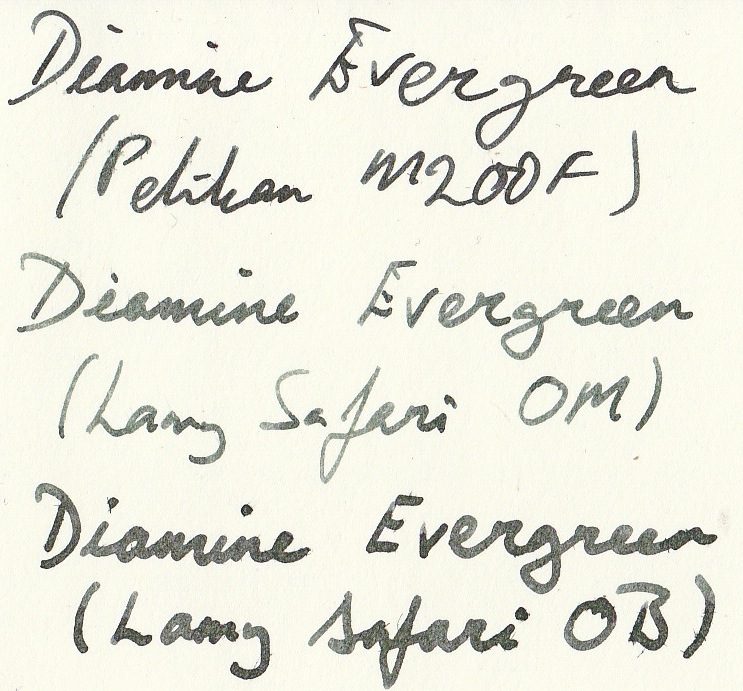 Diamine Evergreen
(Pelikan M200F)
Diamine Evergreen
(Lamy Safari OM)
Diamine Evergreen
(Lamy Safari OB)